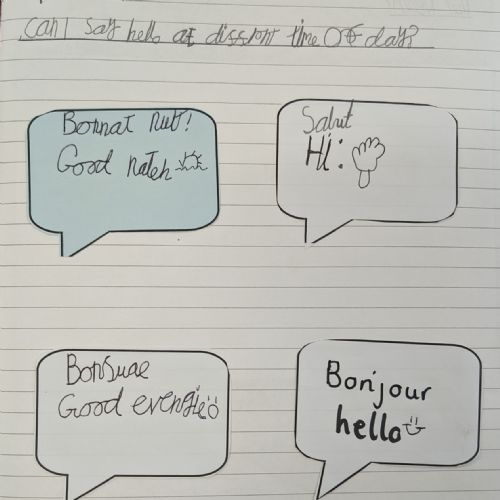 can I say hello at dissront time OF day?
Bonnat nut!
Good nateh
Salut
Hi:
Bonsuae
Good evengie
Bonjour
hello